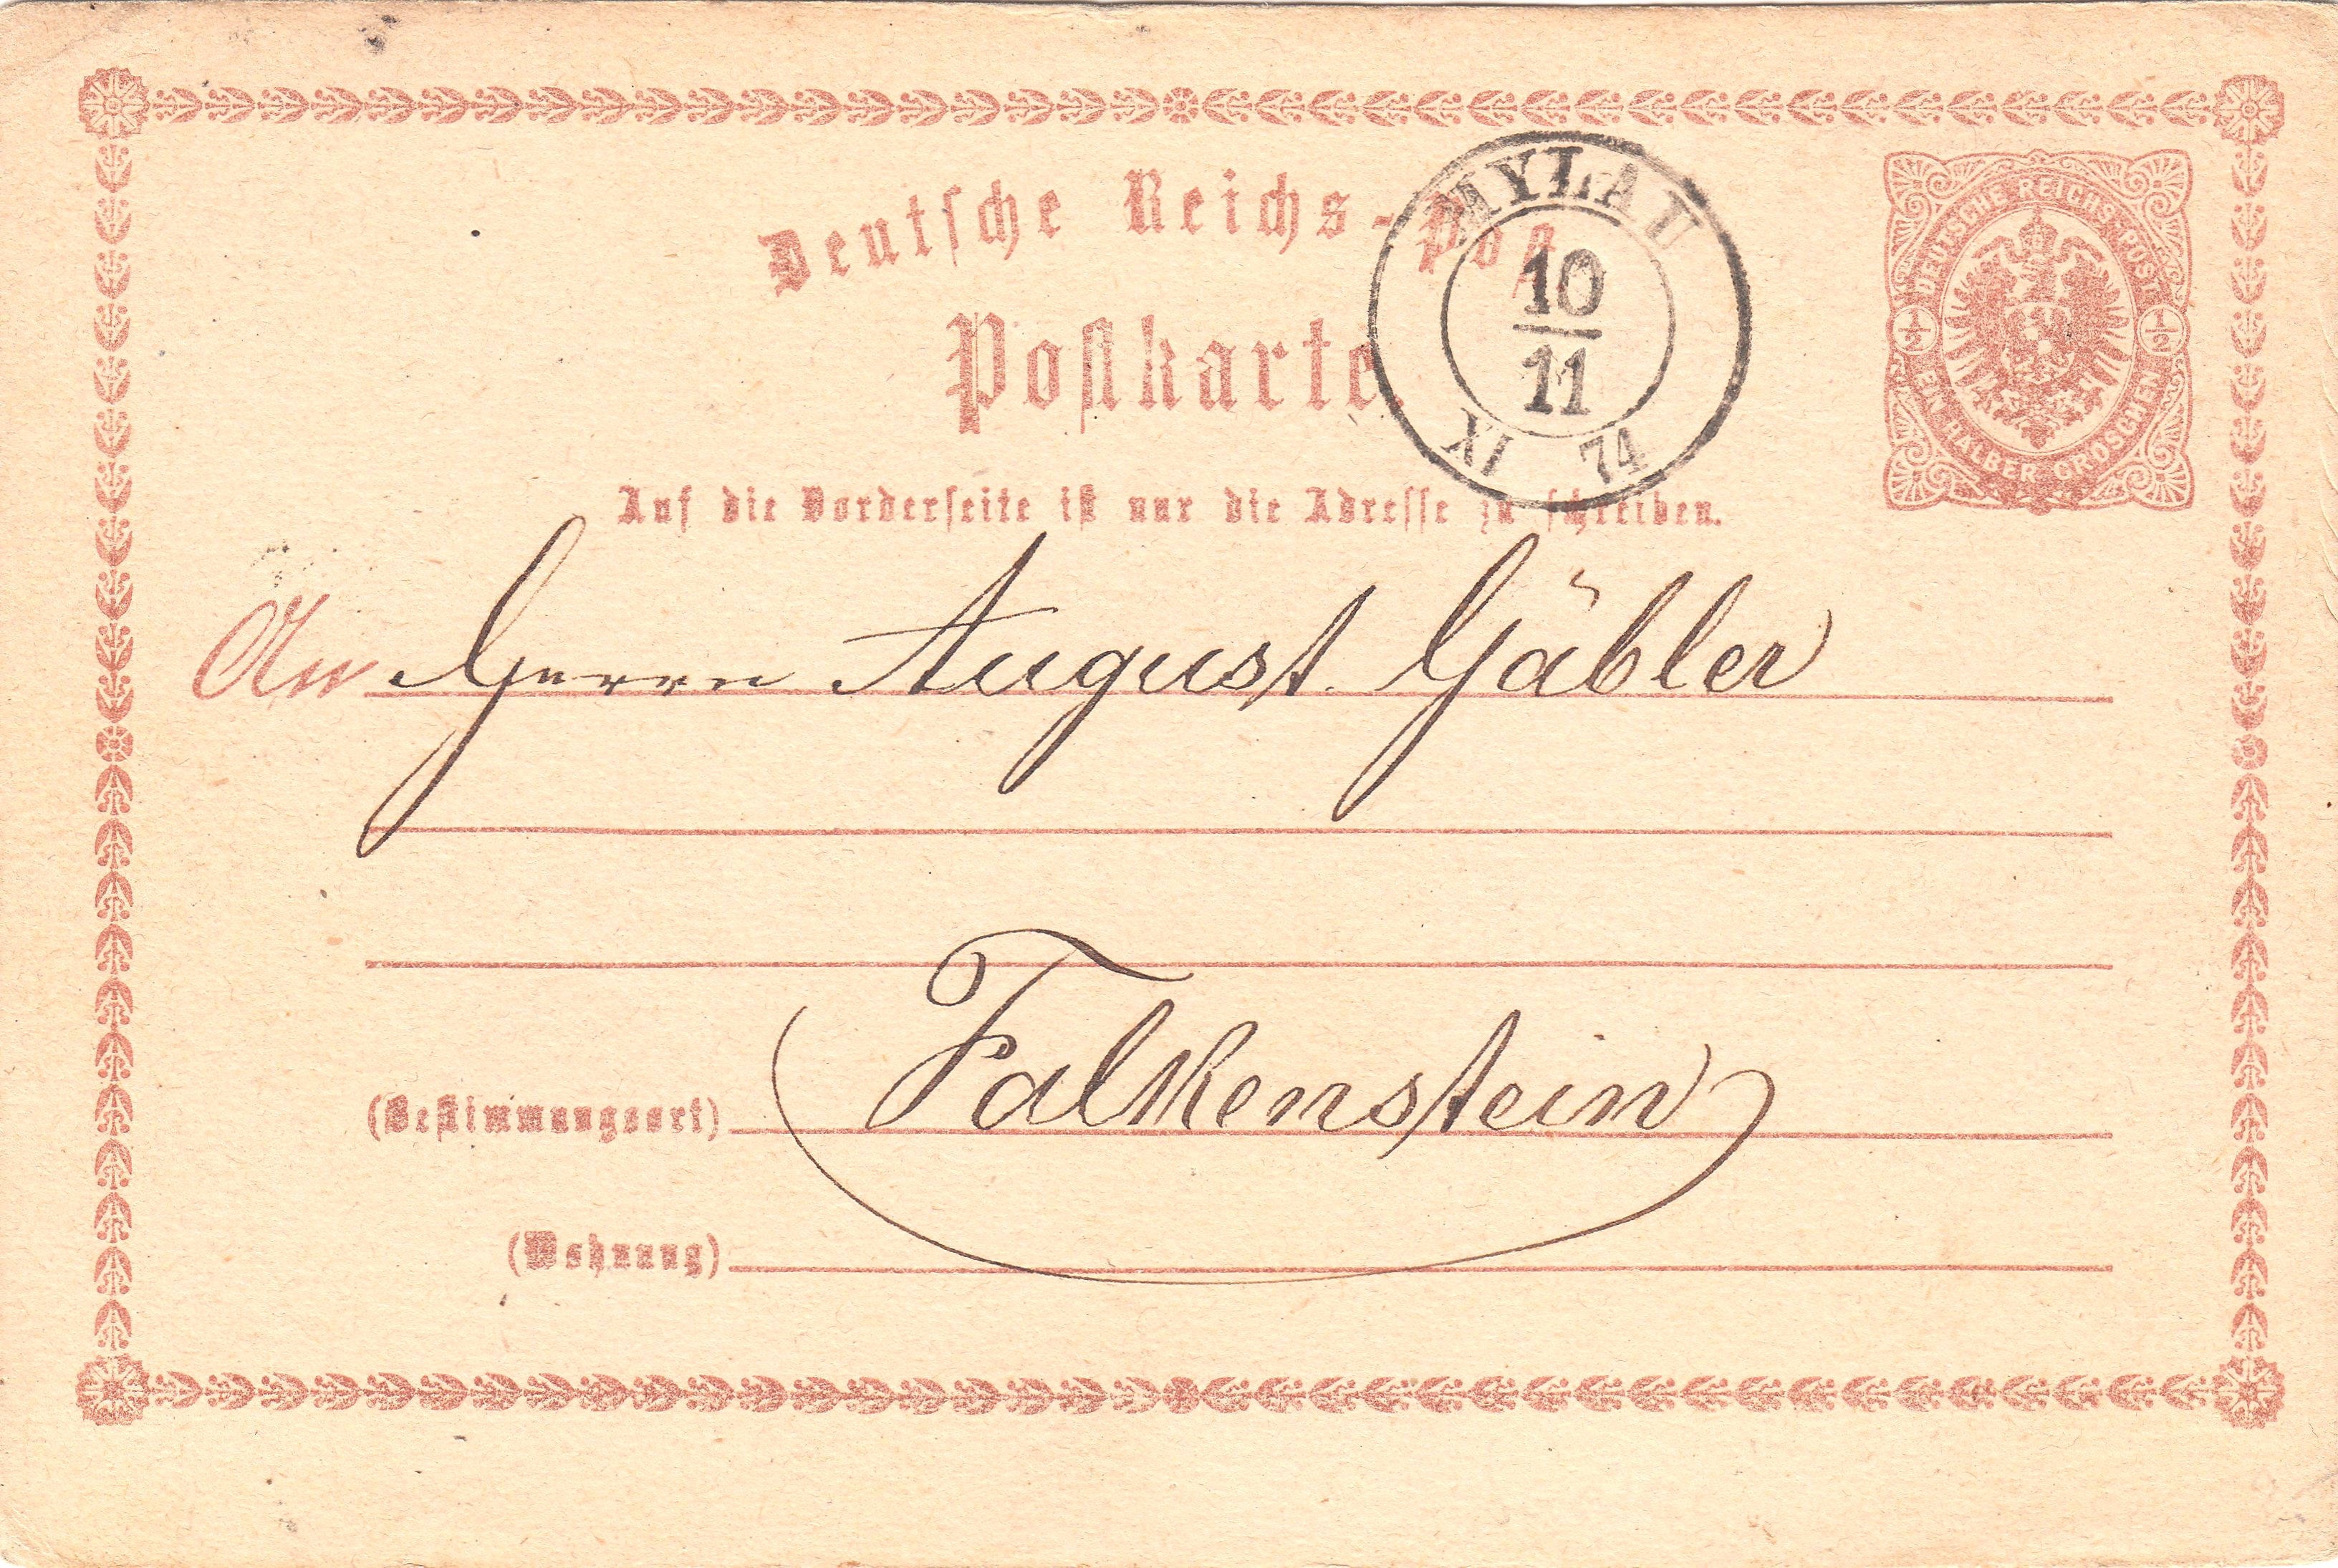 Deutsche Reichs-Post
Postkarte.
MYLAU
10
11
XI 74
DEUTSCHE REICHS-POST
1/2 1/2
EIN HALBER GROSCHEN
Auf die Vorderseite ist nur die Adresse zu schreiben.
An Herrn August Gäbler
(Bestimmungsort) Falkenstein
(Wohnung)